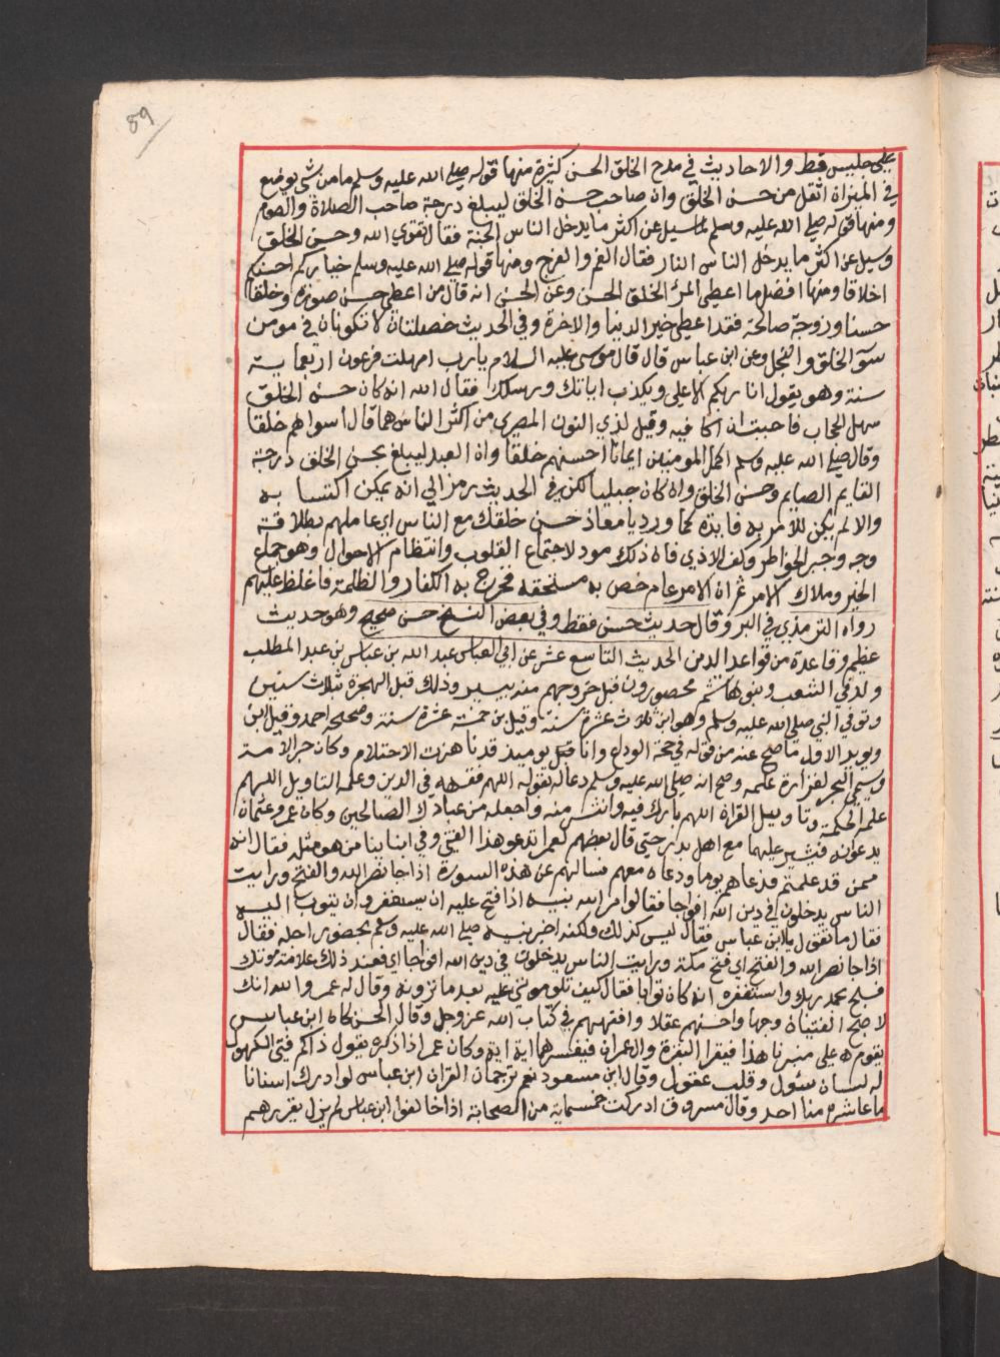 89
علي جليس قط والاحاديث في مدح الخلق الحسن كثيرة منها قوله صلي الله عليه وسلم ما من شي يوضع
في الميزان اثقل من حسن الخلق وان صاحب حسن الخلق ليبلغ درجة صاحب الصلاة والصوم
ومنها قوله صلي الله عليه وسلم لما سيل عن اكثر ما يدخل الناس الجنة فقال تقوي الله وحسن الخلق
وسيل عن اكثر ما يدخل الناس النار فقال الفم والفرج ومنها قوله صلي الله عليه وسلم خياركم احسنكم
اخلاقا ومنها افضل ما اعطي المرء الخلق الحسن وعن الحسن انه قال من اعطي حسن صورة وخلقا
حسنا وزوجة صالحة فقد اعطي خير الدنيا والاخرة وفي الحديث خصلتان لا تكونان في مومن
سوء الخلق والبخل وعن ابن عباس قال قال موسي عليه السلام يارب امهلت فرعون اربعماية
سنة وهو يقول انا ربكم الاعلي ويكذب اياتك ورسلك فقال الله انه كان حسن الخلق
سهل الحجاب فاحببت ان اكافيه وقيل لذي النون المصري من اكثر الناس هما قال اسواهم خلقا
وقال صلي الله عليه وسلم اكمل المومنين ايمانا احسنهم خلقا وان العبد ليبلغ بحسن الخلق درجة
القايم الصايم وحسن الخلق وان كان جبليا لكن في الحديث رمز الي انه يمكن اكتسابه
والا لم يكن للامر به فايدة كما ورد يا معاذ حسن خلقك مع الناس اي عاملهم بطلاقة
وجه وجبر الخواطر وكف الاذي فان ذلك مود لاجتماع القلوب وانتظام الاحوال وهو جماع
الخير وملاك الامر ثم ان الامر عام خص به مستحقه فخرج به الكفار والظلمة فاغلظ عليهم
رواه الترمذي في البر وقال حديث حسن فقط وفي بعض النسخ حسن صحيح وهو حديث
عظيم وقاعدة من قواعد الدين الحديث التاسع عشر عن ابي العباس عبد الله بن عباس بن عبد المطلب
ولد في الشعب وبنو هاشم محصورون قبل خروجهم منه بيسير وذلك قبل الهجرة بثلاث سنين
وتوفي النبي صلي الله عليه وسلم وهو ابن ثلاث عشرة سنة وقيل بن خمسة عشرة سنة وصححه احمد وقيل ابن
ويويد الاول ما صح عنه من قوله في حجة الوداع وانا قبل يوميذ قد ناهزت الاحتلام وكان حبر الامة
ويسمي البحر لغزارة علمه وصح انه صلي الله عليه وسلم دعا له بقوله اللهم فقهه في الدين وعلمه التاويل اللهم
علمه الحكمة وتاويل القران اللهم بارك فيه وانشر منه واجعله من عبادك الصالحين وكان عمر وعثمان
يدعوانه فيشير عليهما مع اهل بدر حتي قال بعضهم لعمر اتدعو هذا الفتي وفي ابنائنا من هو مثله فقال انه
ممن قد علمتم فدعاهم يوما ودعاه معهم فسالهم عن هذه السورة اذا جا نصر الله والفتح ورايت
الناس يدخلون في دين الله افواجا فقالوا امر الله نبيه اذا فتح عليه ان يستغفر وان يتوب اليه
فقال ما تقول يا ابن عباس فقال ليس كذلك ولكنه اخبر نبيه صلي الله عليه وسلم بحضور اجله فقال
اذا جا نصر الله والفتح اي فتح مكة ورايت الناس يدخلون في دين الله افواجا اي فعند ذلك علامة موتك
فسبح بحمد ربك واستغفره انه كان توابا فقال كيف تلوموني عليه بعد ما ترونه وقال له عمر والله انك
لاصبح الفتيان وجها واحسنهم عقلا وافقههم في كتاب الله عز وجل وقال الحسن كان ابن عباس
يقوم علي منبرنا هذا فيقرا البقرة وال عمران فيفسرهما اية اية وكان عمر اذا ذكره يقول ذاكم فتي الكهول
له لسان سئول وقلب عقول وقال ابن مسعود نعم ترجمان القران ابن عباس لو ادرك اسناننا
ما عاشره منا احد وقال مسروق ادركت خمسماية من الصحابة اذا خالفوا ابن عباس لم يزل يقررهم